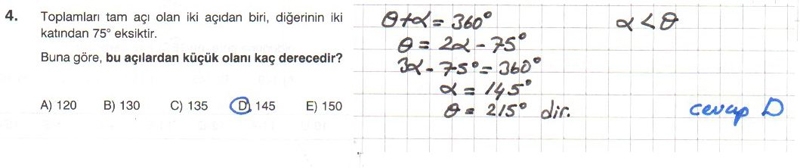 4. Toplamları tam açı olan iki açıdan biri, diğerinin iki
katından 75° eksiktir.
Buna göre, bu açılardan küçük olanı kaç derecedir?
A) 120 B) 130 C) 135 D) 145 E) 150
θ+α = 360° α < θ
θ = 2α - 75°
3α - 75° = 360°
α = 145°
θ = 215° dir.
cevap D